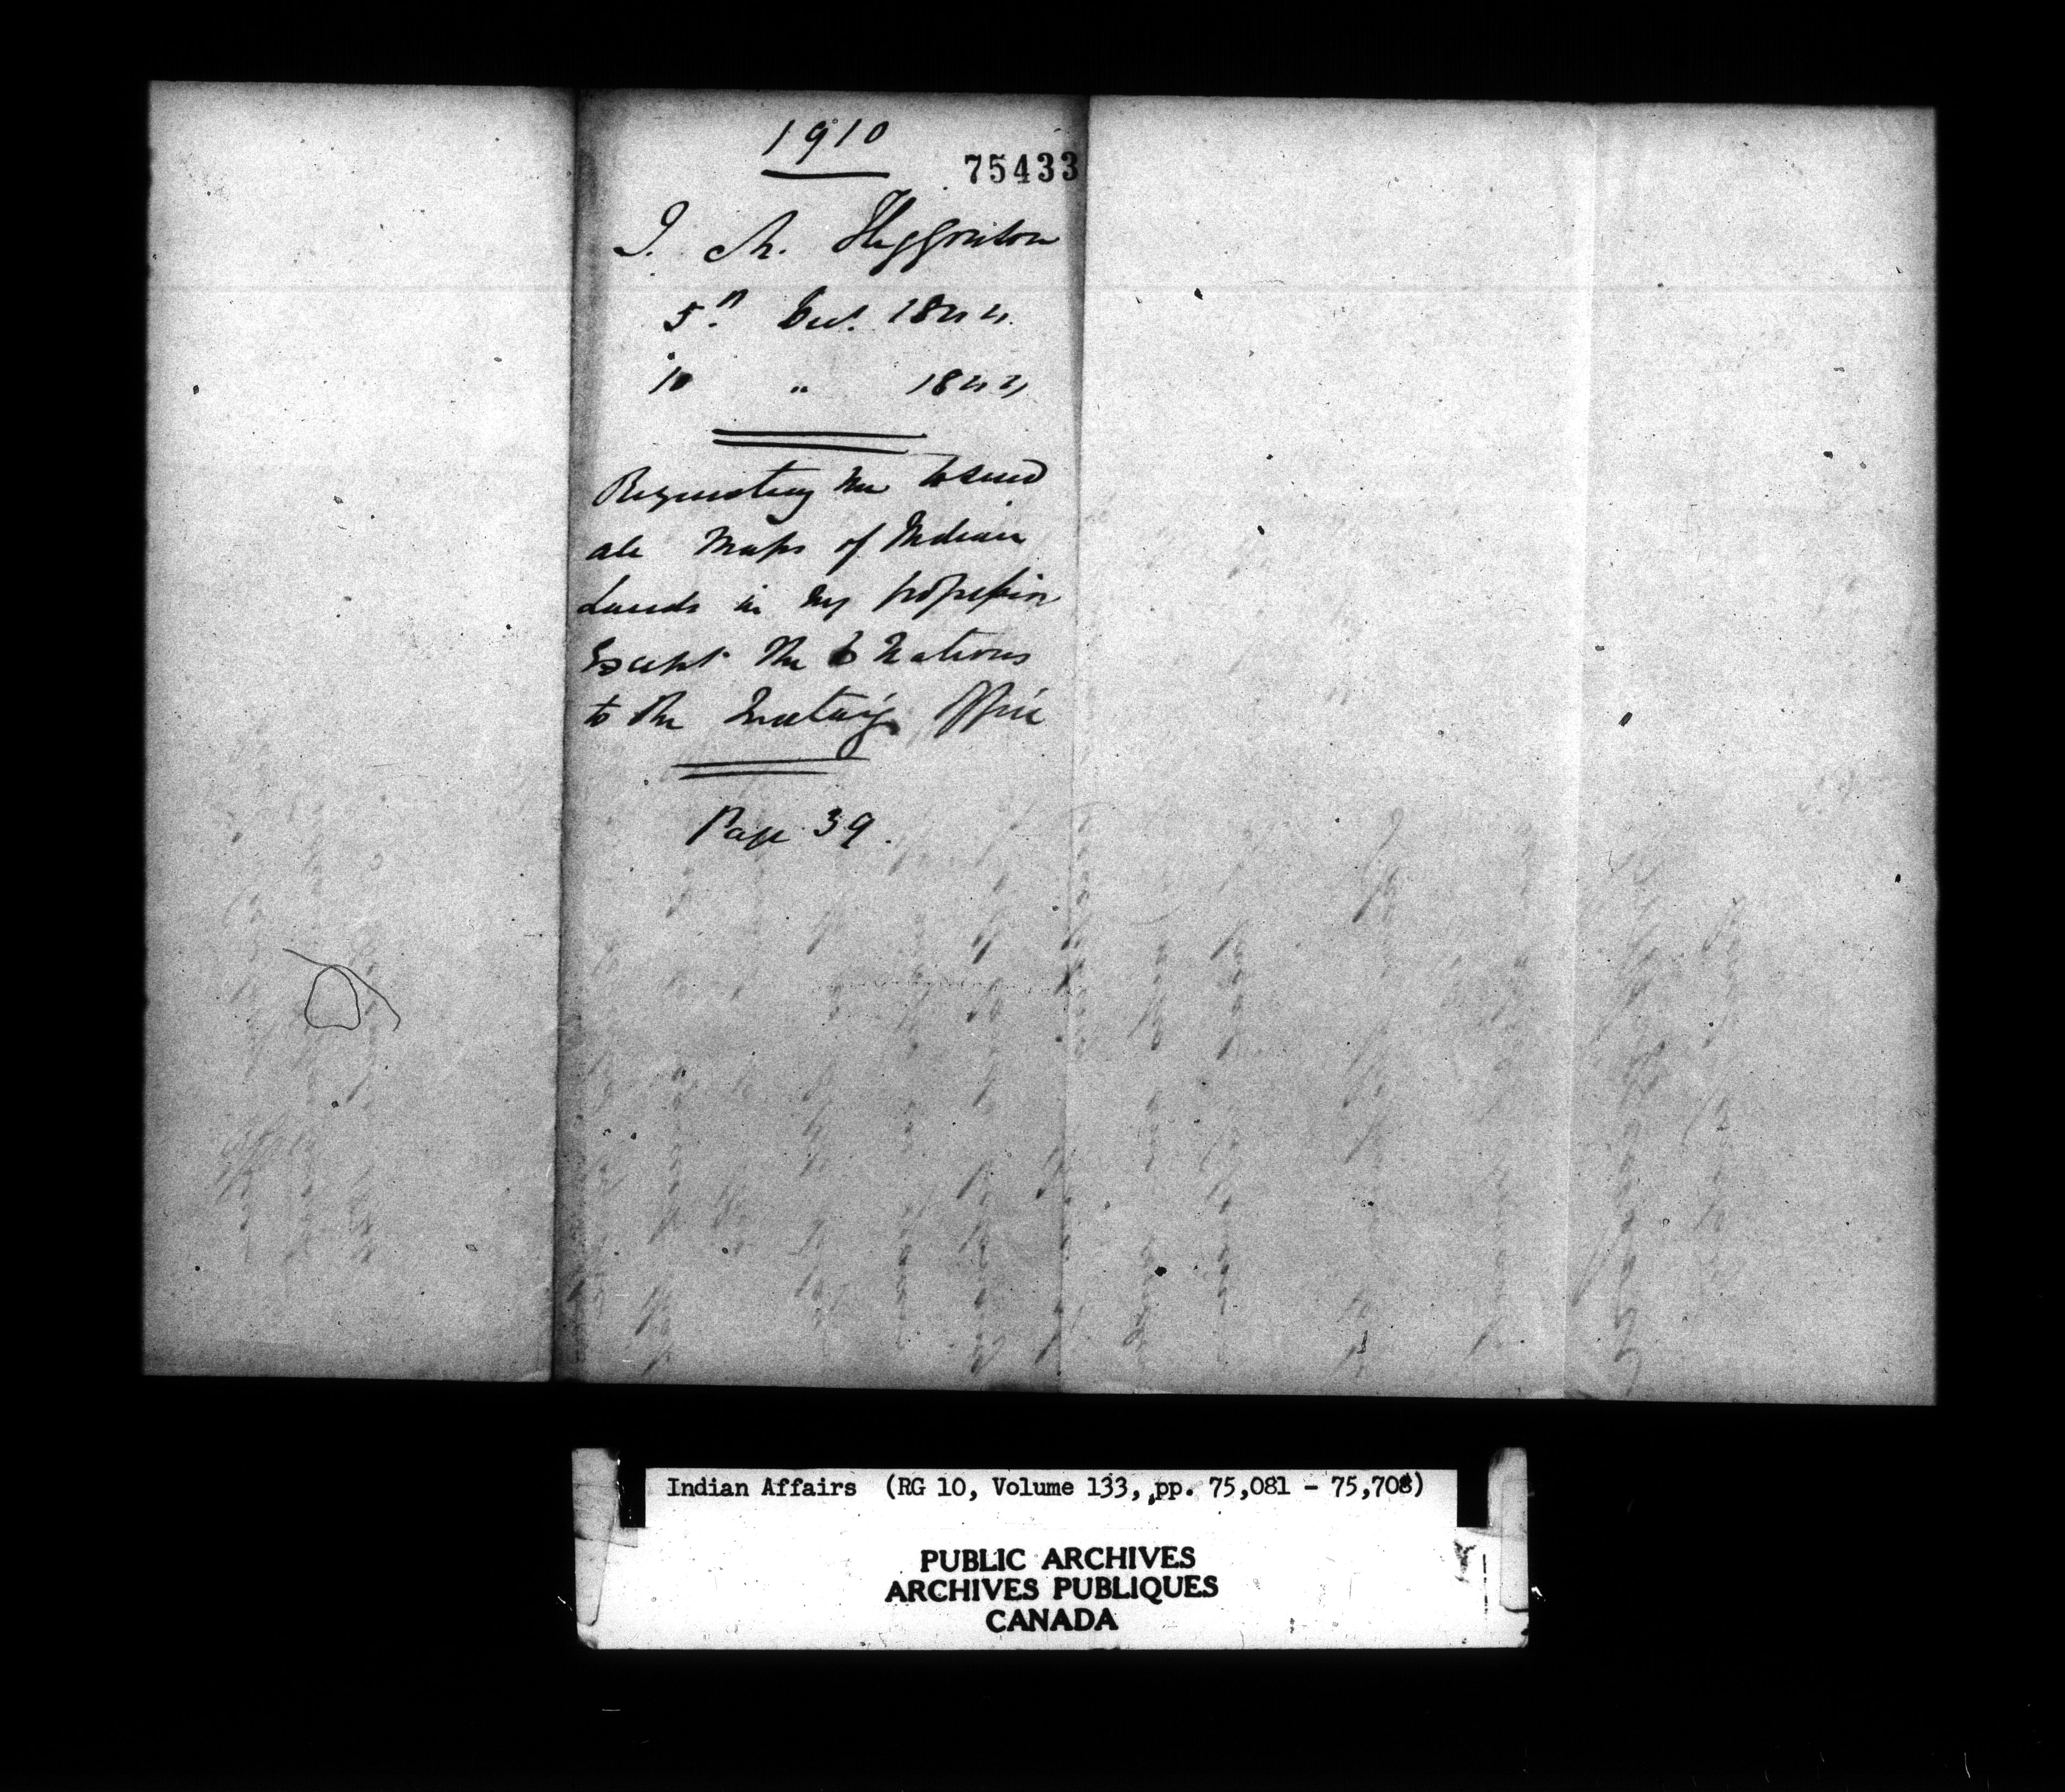 1910
75433
J. M. Higginson
5th Oct. 1844
10 " 1844
Requesting me to send
all Maps of Indian
Lands in my possession
Except the 6 Nations
to the Office
Page 39.
Indian Affairs (RG 10, Volume 133, pp. 75,081 - 75,708)
PUBLIC ARCHIVES
ARCHIVES PUBLIQUES
CANADA